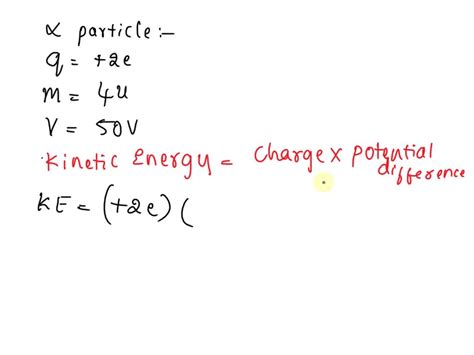 α particle:-
q = +2e
m = 4u
V = 50V
Kinetic Energy = Charge x Potential difference
KE = (+2e) (